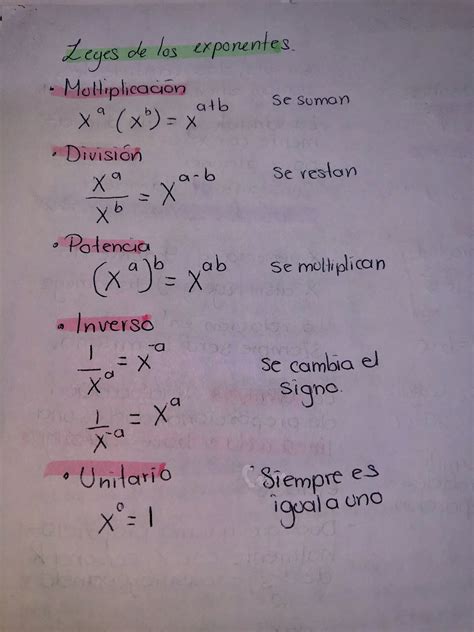 Leyes de los exponentes.
• Multiplicación
xᵃ (xᵇ) = xᵃ⁺ᵇ Se suman
• División
xᵃ/xᵇ = xᵃ⁻ᵇ Se restan
• Potencia
(xᵃ)ᵇ = xᵃᵇ Se multiplican
• Inverso
1/xᵃ = x⁻ᵃ Se cambia el signo.
1/x⁻ᵃ = xᵃ
• Unitario Siempre es
x⁰ = 1 igual a uno